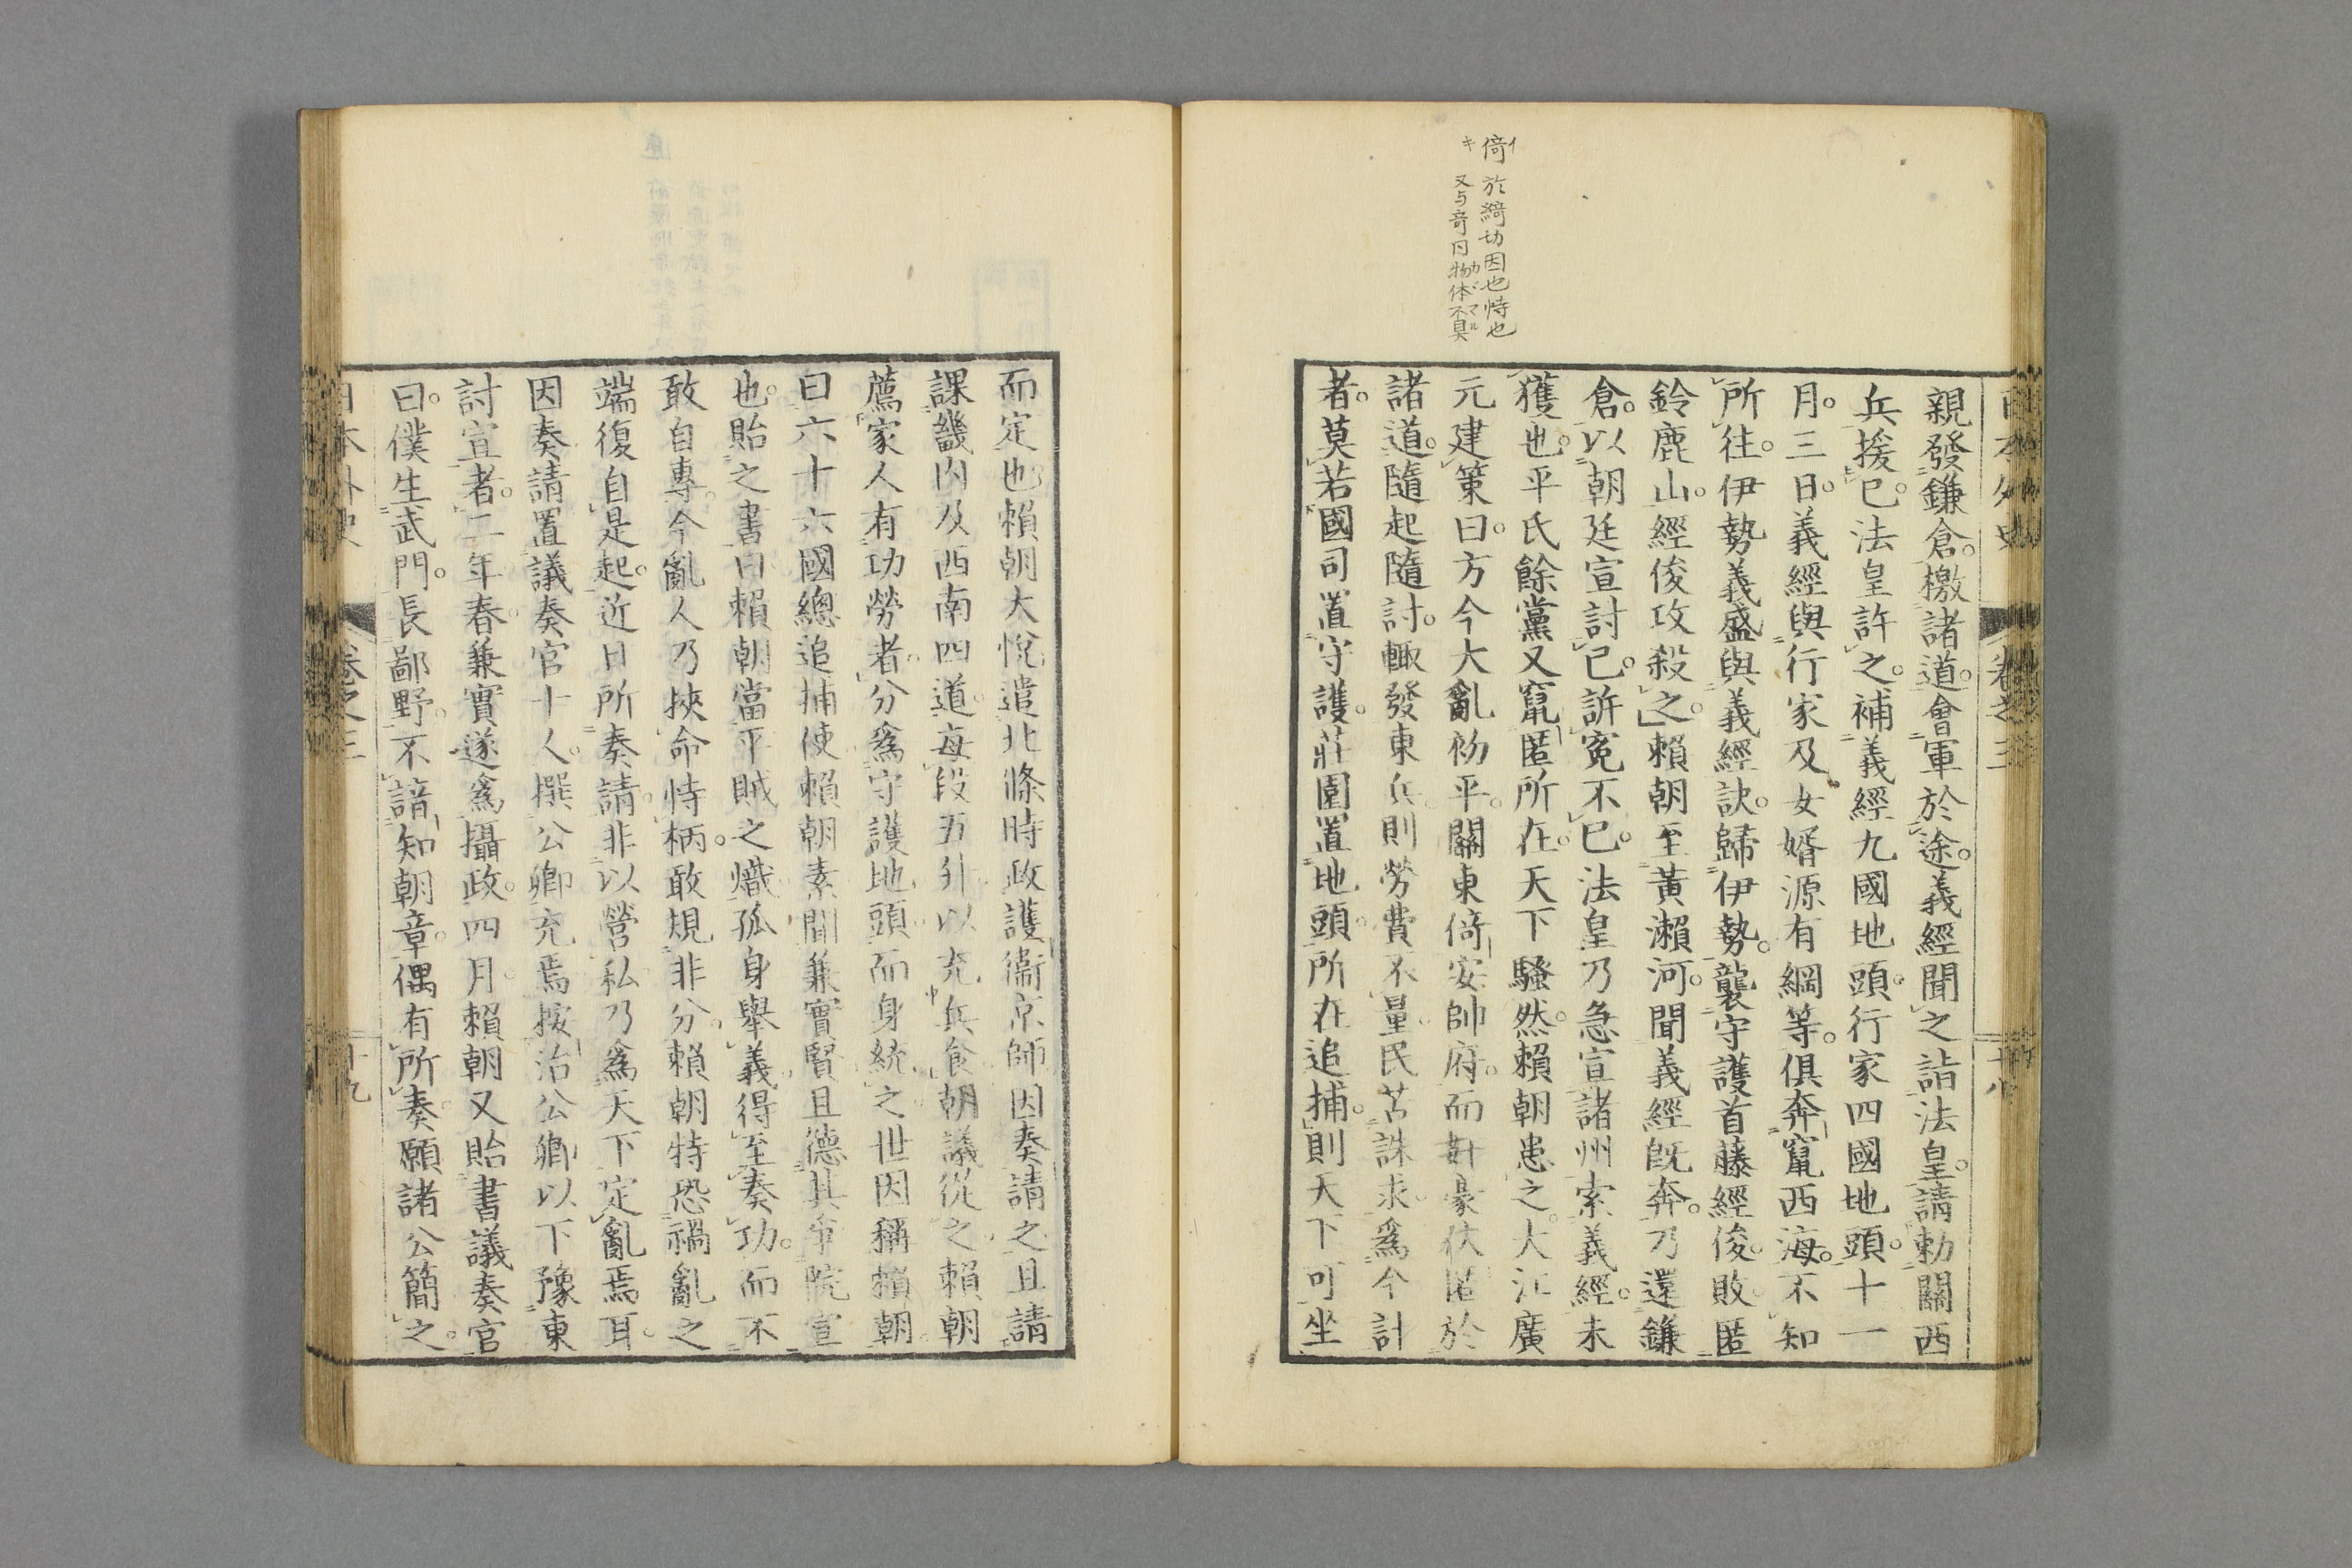 倚 於綺切因也恃也
又与奇同物体不具
親發鎌倉。檄諸道。會軍於途。義經聞之詣法皇。請勅關西
兵援。已法皇許之。補義經九國地頭。行家四國地頭。十一
月。三日。義經與行家及女婿源有綱等。俱奔竄西海。不知
所往。伊勢義盛與義經訣。歸伊勢。襲守護首藤經俊。敗匿
鈴鹿山。經俊攻殺之。賴朝至黃瀨河。聞義經既奔。乃還鎌
倉。以朝廷宣討已。訴寃不已。法皇乃急宣諸州索義經。未
獲也。平氏餘黨又竄匿所在。天下騷然。賴朝患之。大江廣
元建策曰。方今大亂初平。關東倚安帥府。而姧豪伏匿於
諸道。隨起隨討。輙發東兵。則勞費不量。民苦誅求。爲今計
者。莫若國司置守護。莊園置地頭。所在追捕。則天下可坐
而定也賴朝大悅遣北條時政護衞京師因奏請之且請
課畿內及西南四道。每段五升以充兵食朝議從之賴朝
薦家人有功勞者。分爲守護地頭。而身統之。世因稱賴朝
曰六十六國總追捕使賴朝素聞兼實賢且德其爭院宣
也。貽之書曰賴朝當平賊之熾孤身舉義。得至奏功。而不
敢自專。今亂人乃挾命恃柄。敢規非分。賴朝特恐禍亂之
端復自是起。近日所奏請。非以營私乃爲天下定亂焉耳。
因奏請置議奏官十人。撰公卿充焉按治公卿以下豫東
討宣者。二年春。兼實遂爲攝政。四月。賴朝又貽書議奏官
曰。僕生武門。長鄙野。不諳知朝章。偶有所奏。願諸公簡之。
日本外史
卷之三
十九